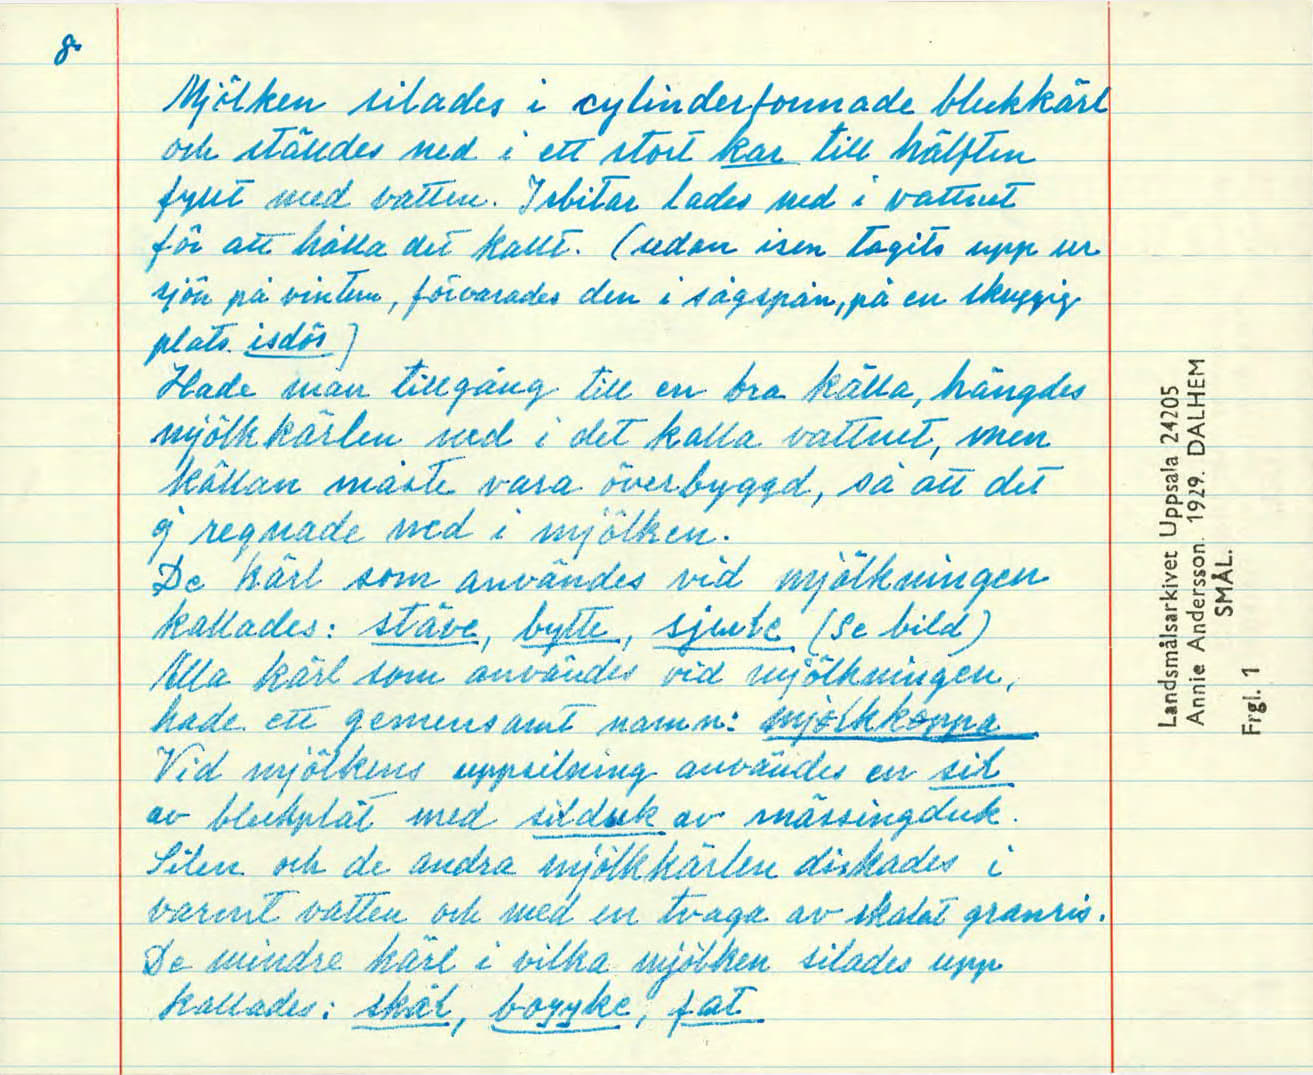 8.
Mjölken silades i cylinderformade bleckkärl
och ställdes ned i ett stort kar till hälften
fyllt med vatten. Isbitar lades ned i vattnet
för att hålla det kallt. (sedan isen tagits upp ur
sjön på vintern, förvarades den i sågspån, på en skuggig
plats. isdös)
Hade man tillgång till en bra källa, hängdes
mjölkkärlen ned i det kalla vattnet, men
källan måste vara överbyggd, så att det
ej regnade ned i mjölken.
De kärl som användes vid mjölkningen
kallades: stäve, bytte, (Se bild)
Alla kärl som användes vid mjölkningen,
hade ett gemensamt namn: mjölkkoppa
Vid mjölkens uppsilning användes en sil
av bleckplåt med silduk av mässingduk.
Silen och de andra mjölkkärlen diskades i
varmt vatten och med en tvaga av skalat granris.
De mindre kärl i vilka mjölken silades upp
kallades: skål, fat
Landsmålsarkivet Uppsala 24205
Annie Andersson. 1929. DALHEM
SMÅL.
Frgl. 1